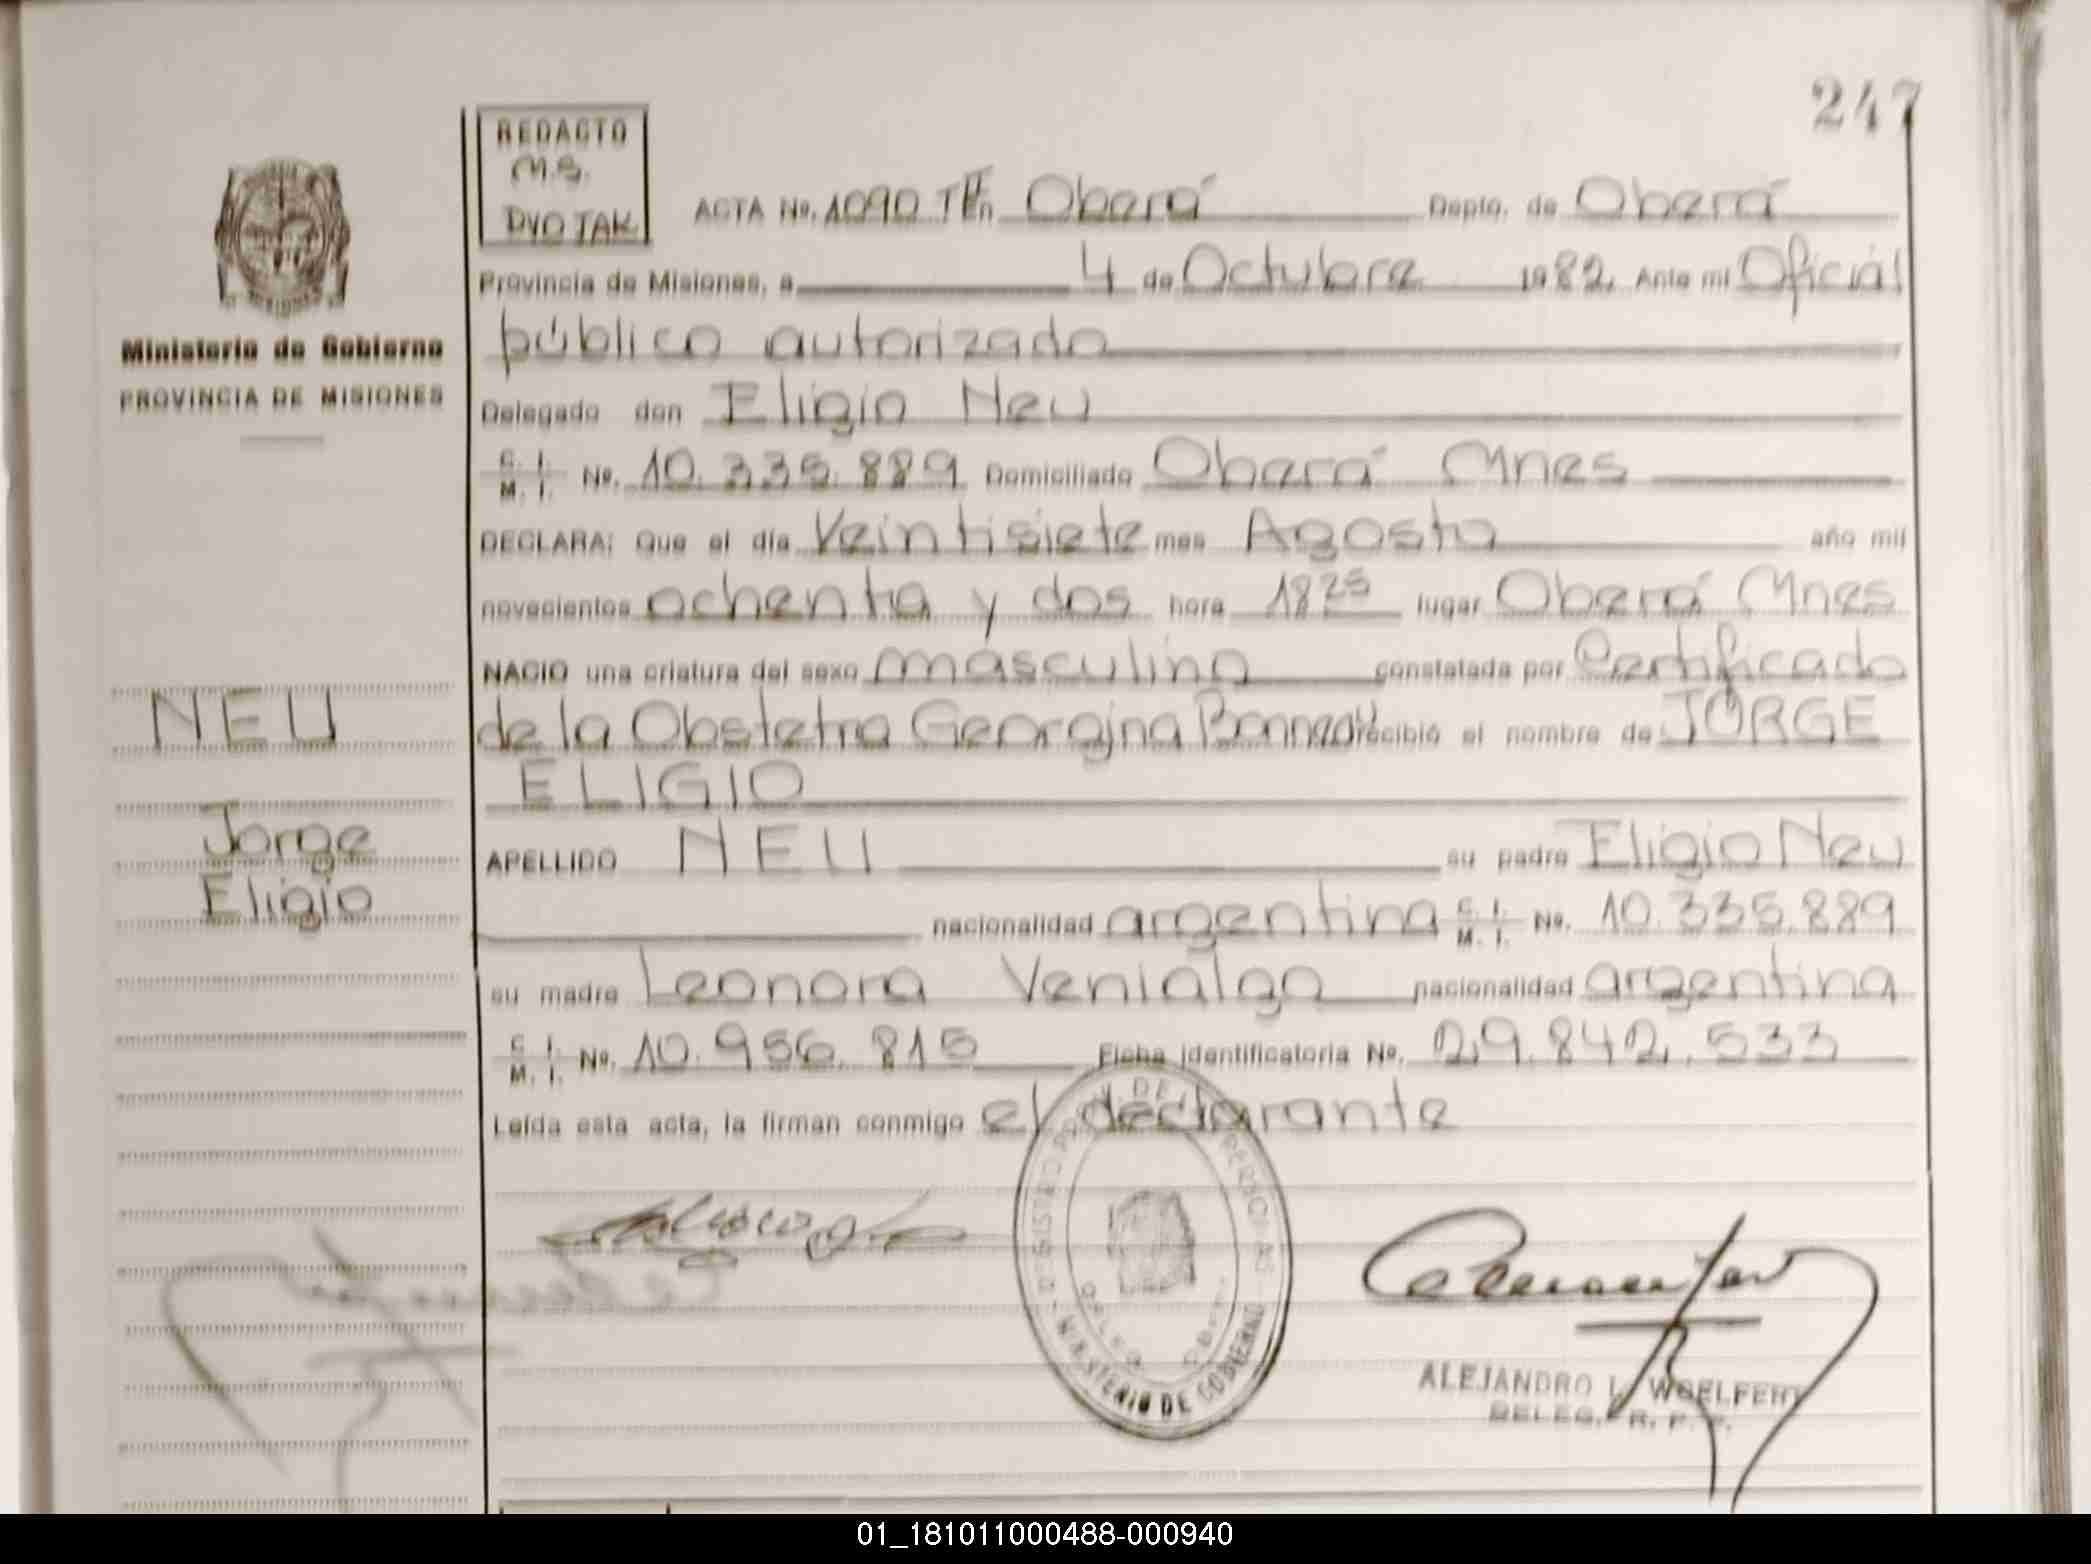 247
REDACTO
M.S.
DVOJAK
ACTA No. 1090 Tº Oberá Depto. de Oberá
Provincia de Misiones, a 4 de Octubre 1982. Ante mi Oficial
público autorizado
Ministerio de Gobierno
PROVINCIA DE MISIONES
Delegado don Eligio Neu
C. I.
M. I. No. 10.335.889 Domiciliado Oberá Mnes
DECLARA: Que el día Veintisiete mes Agosto año mil
novecientos ochenta y dos hora 18 25 lugar Oberá Mnes
NACIO una criatura del sexo masculino constatada por Certificado
NEU
de la Obstetra Georgina recibió el nombre de JORGE
ELIGIO
Jorge
Eligio
APELLIDO NEU su padre Eligio Neu
nacionalidad argentina C. I.
M. I. No. 10.335.889
su madre Leonora Venialgo nacionalidad argentina
C. I.
M. I. No. 10.956.815 Ficha identificatoria No. 29.842.533
Leída esta acta, la firman conmigo el declarante
MINISTERIO DE GOBIERNO
ALEJANDRO L.
DELEG. R. P. P.
01_181011000488-000940